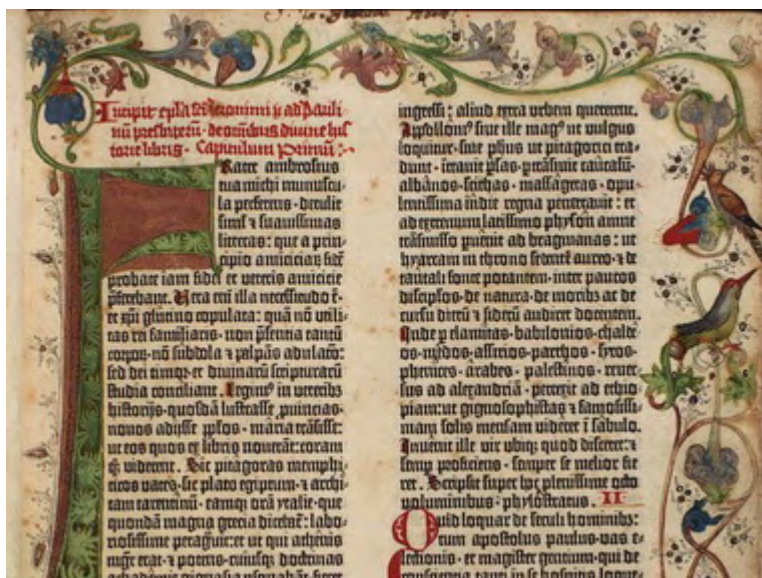 Incipit epl'a sci iheronimi p̄ ad Pauli-
nū presbiterū · de omnibus divine his-
torie libris · Capitulum Primū:
Frater ambrosius
tua michi munuscu-
la perferens · detulit
simul ⁊ suavissimas
litteras: que a prin-
cipio amiciciaꝝ fidē
probate iam fidei et veteris amicicie
p̄ferebant. Vera eni illa necessitudo ē·
et xp̄i glutino copulata: quā nō utili-
tas rei familiaris · non p̄sentia tantū
corporū · nō subdola ⁊ palpās adulatō:
sed dei timor et divinarū scripturarū
studia conciliant. Legimꝰ in veteribꝫ
historijs · quosdā lustrasse p̄vincias ·
novos adijsse p̄p̄los · maria trāsisse:
ut eos quos ex libris noverāt: coram
qꝫ viderent. Sic pitagoras memphi-
ticos vates · sic plato egiptum · ⁊ archi-
tam tarentinū · eamqꝫ orā ytalie · que
quondā magna grecia dicebat̄: labo-
riosissime peragravit: et ut qui athenis
mgr̄ erat · ⁊ potens · cuiusqꝫ doctrinas
achademie gignasia
ingressi: aliud extra urbem quererent.
Appolloniꝰ sive ille magꝰ ut vulgus
loquitur · sive ph̄us ut pitagorici tra-
dunt · itravit p̄sas · p̄trāsivit caucasū ·
albanos · scithas · massagetas · opu-
lentissima indie regna penetravit: et
ad extremum latissimo physon amne
trāsmisso p̄venit ad bragmanas: ut
hyarcam in throno sedentē aureo · ⁊ de
tantali fonte potantem · inter paucos
discipl'os · de natura · de moribꝫ ac de
cursu dierū ⁊ siderū audiret docentem.
Inde p̄ elamitas · babilonios · chalde-
os · medos · assirios · parthos · syros ·
phenices · arabes · palestinos · rever-
sus ad alexandriā · perrexit ad ethio-
piam: ut gignosophistas ⁊ famosissi-
mam solis mensam videret ī sabulo.
Invenit ille vir ubiqꝫ quod disceret: ⁊
semp̄ proficiens · semper se melior fie-
ret. Scripsit super hoc plenissime octo
voluminibus · phylostratus. II
Quid loquar de seculi hominibꝫ:
cum apostolus paulus · vas e-
lectionis · et magister gentium · qui de
conscientia tanti in se hospitis loque-